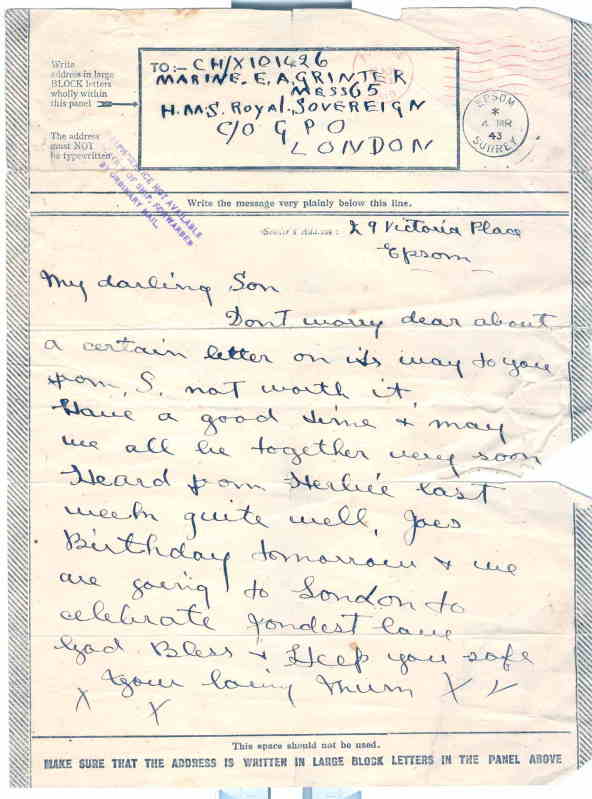 Write
address in large
BLOCK letters
wholly within
this panel
The address
must NOT
be typewritten
TO:- CH/X101426
MARINE. E, A, GRINTER
MESS 65
H.M.S. ROYAL, SOVEREIGN
C/O G P O
LONDON
EPSOM
*
43
SURREY
SERVICE NOT AVAILABLE
FORWARDED
BY ORDINARY MAIL
Write the message very plainly below this line.
Sender's Address:
29 Victoria Place
Epsom
My darling Son
Don't worry dear about
a certain letter on its way to you
from, S. not worth it
Have a good time & may
we all be together very soon
Heard from Herbie last
week quite well, Joes
Birthday tomorrow & we
are going to London to
celebrate fondest love
God Bless & Keep you safe
Your loving Mum X X
X X
This space should not be used.
MAKE SURE THAT THE ADDRESS IS WRITTEN IN LARGE BLOCK LETTERS IN THE PANEL ABOVE